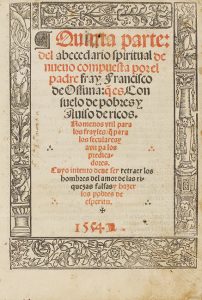 Quinta parte:
del abecedario spiritual de
nueuo compuesta por el
padre fray Francisco
de Ossuna: q̃ es Con
suelo de pobres y
Auiso de ricos.
No menos vtil para
los frayles q̃ para
los seculares y
aun pa los
predica
dores.
Cuyo intento deue ser retraer los
hombres del amor de las ri
quezas falsas y hazer
los pobres de
espiritu.